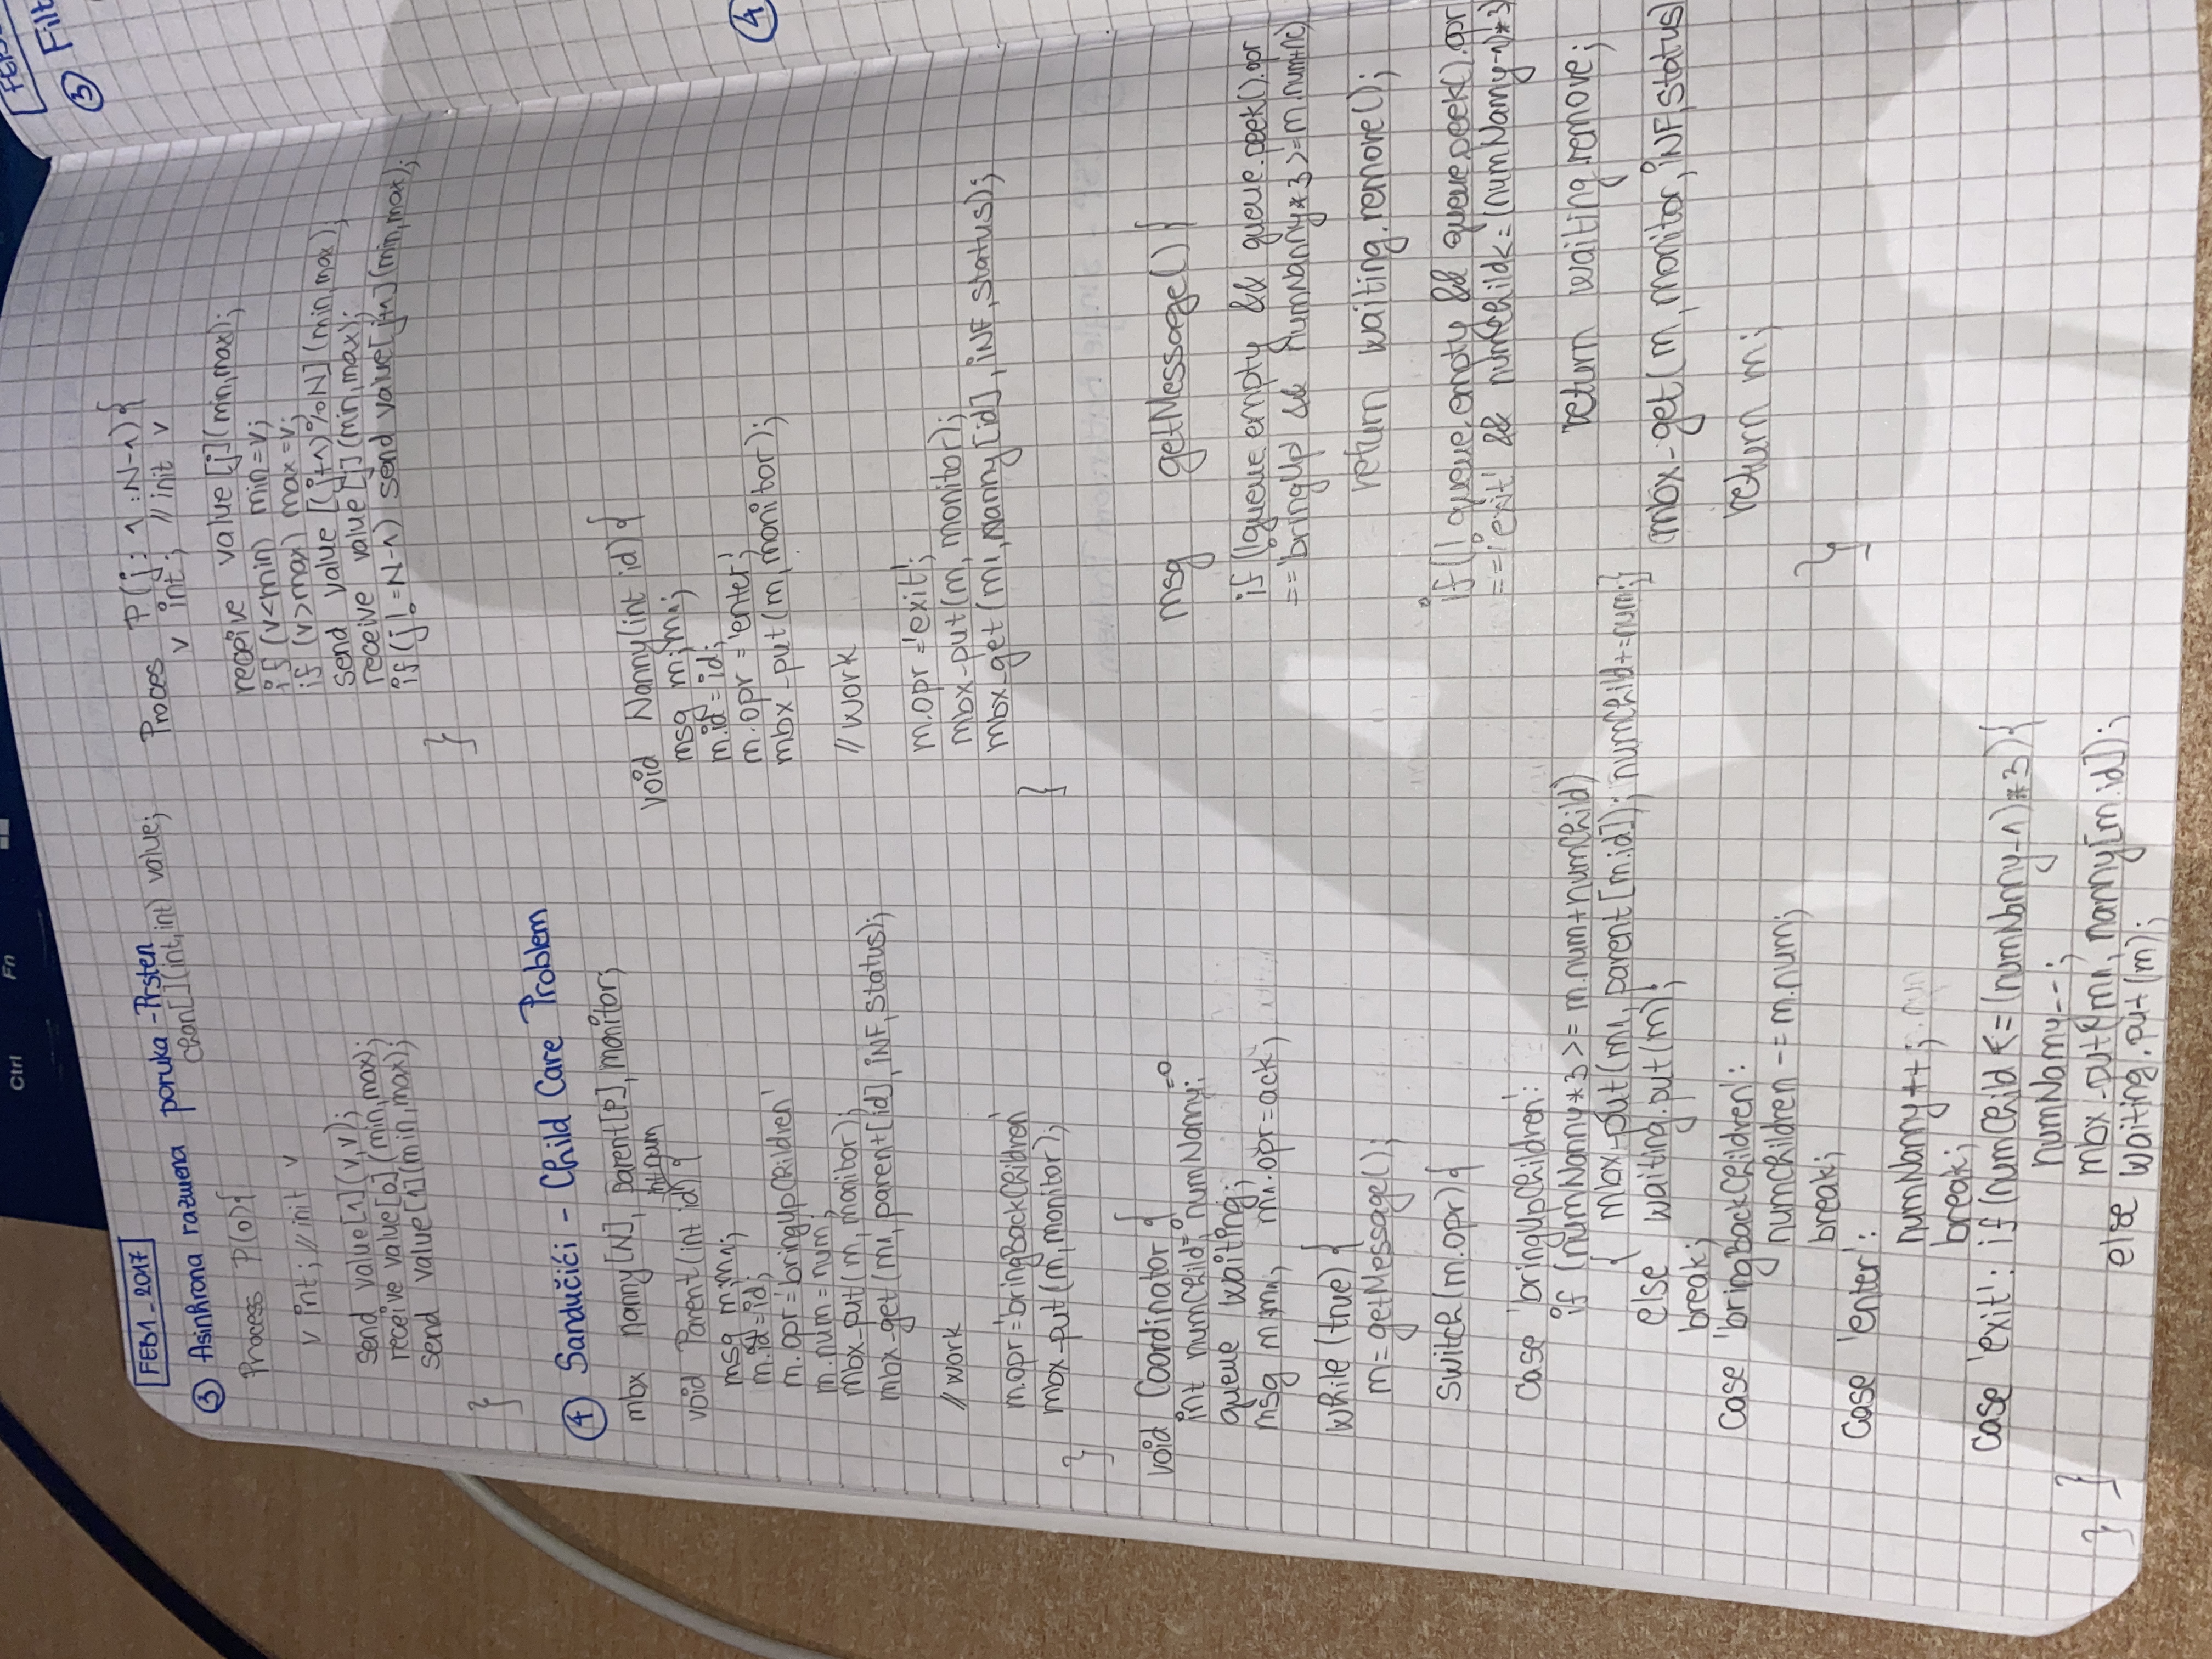 Ctrl
Fn
FEB1_2017
③ Asinhrona razmena poruka - Prsten
chan[](int,int) value;
Process P(0){
v int; // init v
send value[1](v,v);
receive value[0](min,max);
send value[1](min,max);
}
Proces P(j: 1:N-1){
v int; // init v
receive value[j](min,max);
if (v<min) min=v;
if (v>max) max=v;
send value[(j+1)%N](min,max);
receive value[j](min,max);
if(j!=N-1) send value[j+1](min,max);
}
④ Sandučići - Child Care Problem
mbx nanny[N], parent[P], monitor;
int num
void Parent(int id) {
msg m,m1;
m.id=id;
m.opr='bringUpChildren'
m.num=num;
mbx-put(m, monitor);
mbx-get(m1, parent[id], iNF, status);
// work
m.opr='bringBackChildren'
mbx-put(m, monitor);
}
void Nanny(int id){
msg m,m1;
m.id=id;
m.opr='enter';
mbx-put(m, monitor);
// work
m.opr='exit';
mbx-put(m, monitor);
mbx-get(m1, nanny[id], iNF, status);
}
void Coordinator {
int numChild=0, numNanny=0;
queue waiting;
msg m,m1; m1.opr=ack;
while(true){
m=getMessage();
switch(m.opr){
case 'bringUpChildren':
if (numNanny*3>=m.num+numChild)
{ mbx-put(m1, parent[m.id]); numChild+=num;}
else waiting.put(m);
break;
case 'bringBackChildren':
numChildren -= m.num;
break;
case 'enter':
numNanny++;
break;
case 'exit': if(numChild<=(numNanny-1)*3){
numNanny--;
mbx-put(m1, nanny[m.id]);
else waiting.put(m);
} }
msg getMessage(){
if(!queue.empty && queue.peek().opr
=='bringUp' && numNanny*3>=m.num+nc)
return waiting.remove();
if(!queue.empty && queue.peek().opr
=='exit' && numChild<=(numNanny-1)*3)
return waiting.remove;
mbx-get(m, monitor, iNF, status)
return m;
}
③ Filt
④